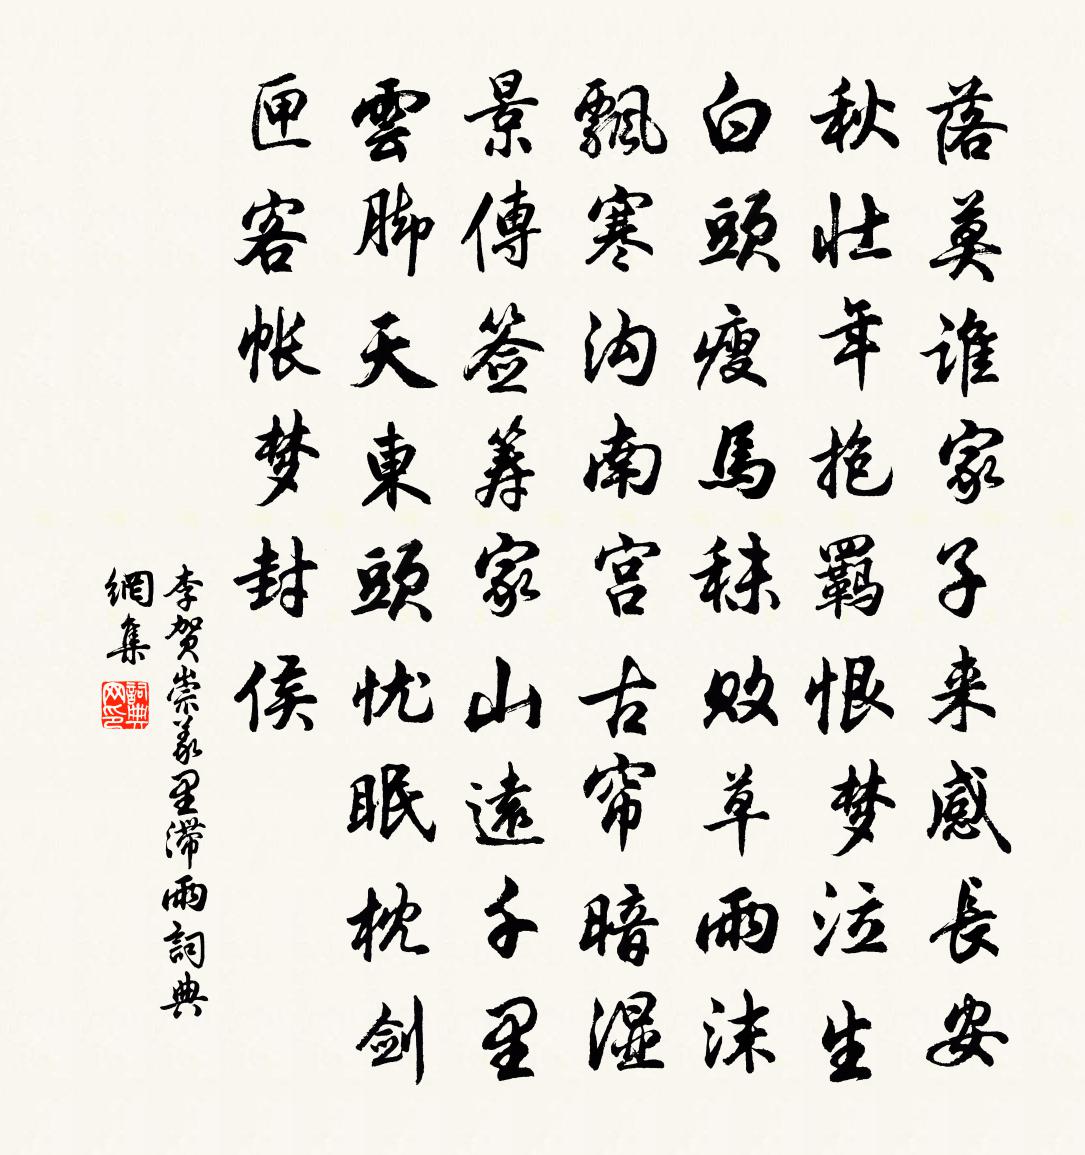 落莫谁家子来感長安
秋壮年抱羁恨梦泣生
白頭瘦馬秣败草雨沫
飄寒沟南宫古帘暗湿
景傳签筹家山遠千里
雲脚天東頭忧眠枕剑
匣客帐梦封侯
李贺崇义里滞雨詞典
網集
詞典网印